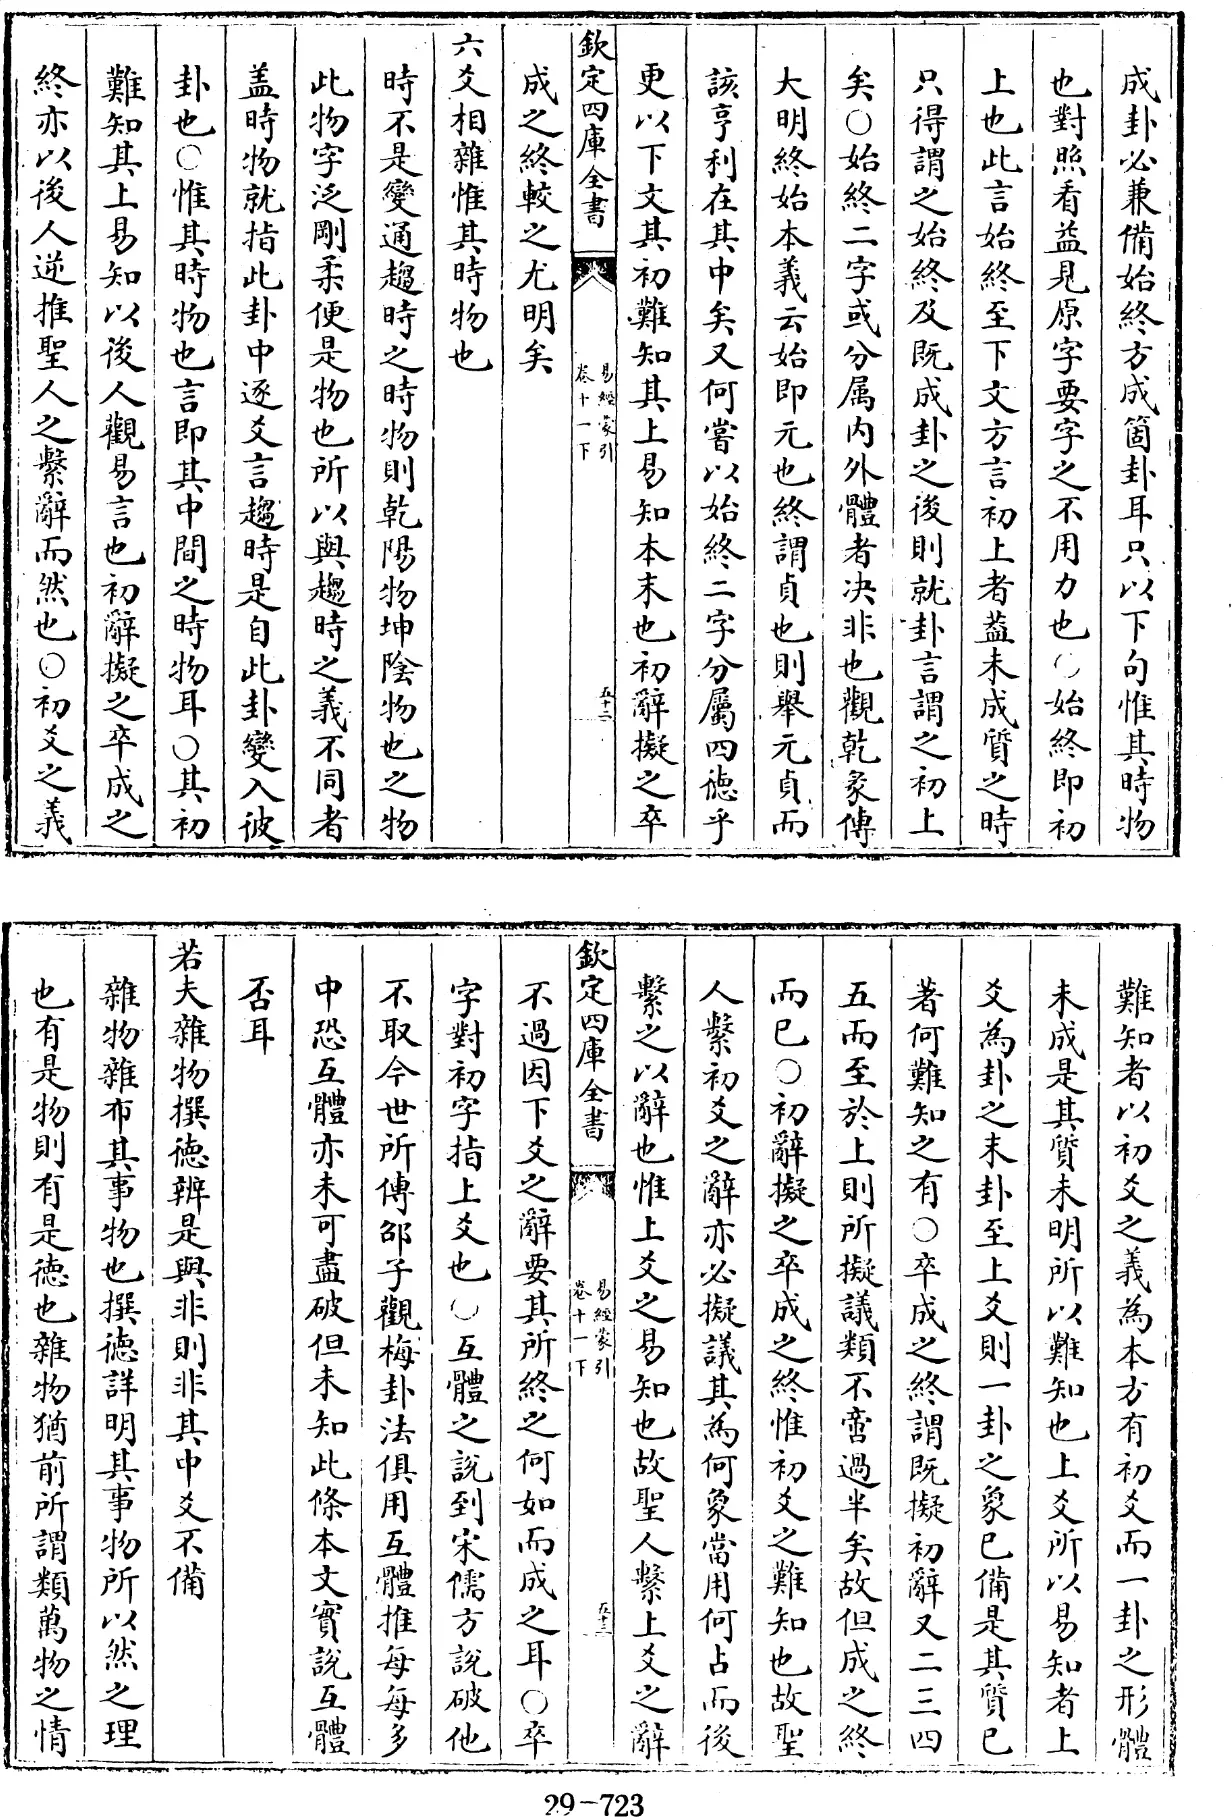 成卦必兼備始終方成箇卦耳只以下句惟其時物
也對照看益見原字要字之不用力也○始終即初
上也此言始終至下文方言初上者葢未成質之時
只得謂之始終及既成卦之後則就卦言謂之初上
矣○始終二字或分属内外體者决非也觀乾彖傳
大明終始本義云始即元也終謂貞也則舉元貞而
該亨利在其中矣又何嘗以始終二字分屬四徳乎
更以下文其初難知其上易知本末也初辭擬之卒
欽定四庫全書
易經蒙引
卷十一下
五十二
成之終較之尤明矣
六爻相雜惟其時物也
時不是變通趨時之時物則乾陽物坤陰物也之物
此物字泛剛柔便是物也所以與趨時之義不同者
盖時物就指此卦中逐爻言趨時是自此卦變入彼
卦也○惟其時物也言即其中間之時物耳○其初
難知其上易知以後人觀易言也初辭擬之卒成之
終亦以後人逆推聖人之繫辭而然也○初爻之義
難知者以初爻之義為本方有初爻而一卦之形體
未成是其質未明所以難知也上爻所以易知者上
爻為卦之末卦至上爻則一卦之象已備是其質已
著何難知之有○卒成之終謂既擬初辭又二三四
五而至於上則所擬議類不啻過半矣故但成之終
而已○初辭擬之卒成之終惟初爻之難知也故聖
人繫初爻之辭亦必擬議其為何象當用何占而後
繫之以辭也惟上爻之易知也故聖人繫上爻之辭
欽定四庫全書
易經蒙引
卷十一下
五十三
不過因下爻之辭要其所終之何如而成之耳○卒
字對初字指上爻也○互體之說到宋儒方說破他
不取今世所傳邵子觀梅卦法俱用互體推每每多
中恐互體亦未可盡破但未知此條本文實說互體
否耳
若夫雜物撰徳辨是與非則非其中爻不備
雜物雜布其事物也撰徳詳明其事物所以然之理
也有是物則有是徳也雜物猶前所謂類萬物之情
29-723